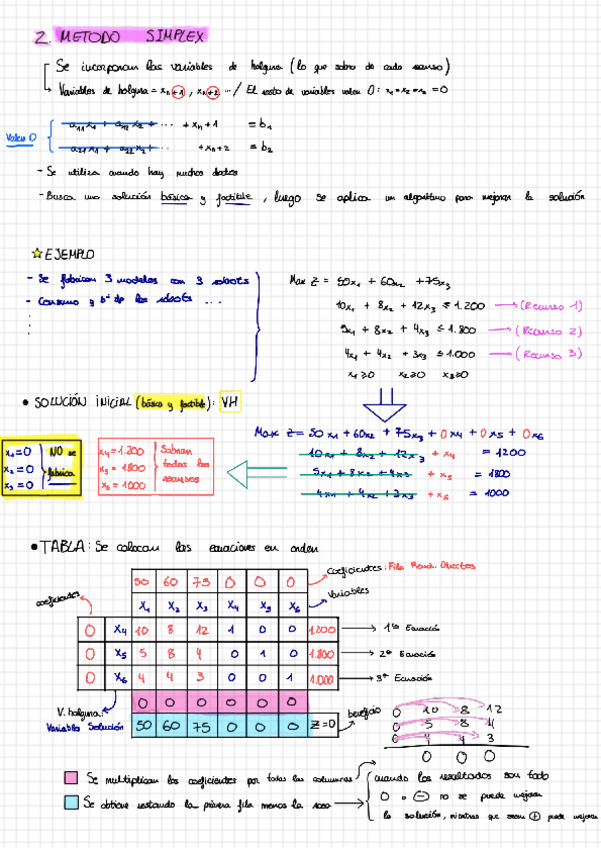 2. METODO SIMPLEX
Se incorporan las variables de holgura (lo que sobra de cada recurso)
Variables de holgura = xn+1, xn+2 ... / El resto de variables valen 0: x1=x2=x3=0
Valen 0
a11x1 + a12x2 + ... + xn+1 = b1
a21x1 + a22x2 + ... + xn+2 = b2
- Se utiliza cuando hay muchos datos
- Busca una solución básica y factible, luego se aplica un algoritmo para mejorar la solución
☆ EJEMPLO
- Se fabrican 3 modelos con 3 robots
- Consumo y bº de los robots ...
Max Z = 50x1 + 60x2 + 75x3
10x1 + 8x2 + 12x3 ≤ 1.200 → (Recurso 1)
5x1 + 8x2 + 4x3 ≤ 1.800 → (Recurso 2)
4x1 + 4x2 + 3x3 ≤ 1.000 → (Recurso 3)
x1≥0 x2≥0 x3≥0
• SOLUCIÓN INICIAL (básica y factible): VH
Max Z= 50x1 + 60x2 + 75x3 + 0x4 + 0x5 + 0x6
10x1 + 8x2 + 12x3 + x4 = 1200
5x1 + 8x2 + 4x3 + x5 = 1800
4x1 + 4x2 + 3x3 + x6 = 1000
x1=0
x2=0
x3=0
NO se
fabrica
x4=1.200
x5=1800
x6=1000
Sobran
todos los
recursos
• TABLA: Se colocan las ecuaciones en orden
50 60 75 0 0 0
Coeficientes: Fila Rend. Directos
coeficientes
x1 x2 x3 x4 x5 x6
Variables
0 x4 10 8 12 1 0 0 1.200 → 1ª Ecuación
0 x5 5 8 4 0 1 0 1.800 → 2ª Ecuación
0 x6 4 4 3 0 0 1 1.000 → 3ª Ecuación
V. holgura:
Variables Solución
0 0 0 0 0 0
50 60 75 0 0 0 Z=0
beneficio
0 10 8 12
0 5 8 4
0 4 4 3
0 0 0
Se multiplican los coeficientes por todas las columnas
Se obtiene restando la primera fila menos la rosa
cuando los resultados son todo
0 o ⊖ no se puede mejorar
la solución, mientras que sean ⊕ puede mejorar